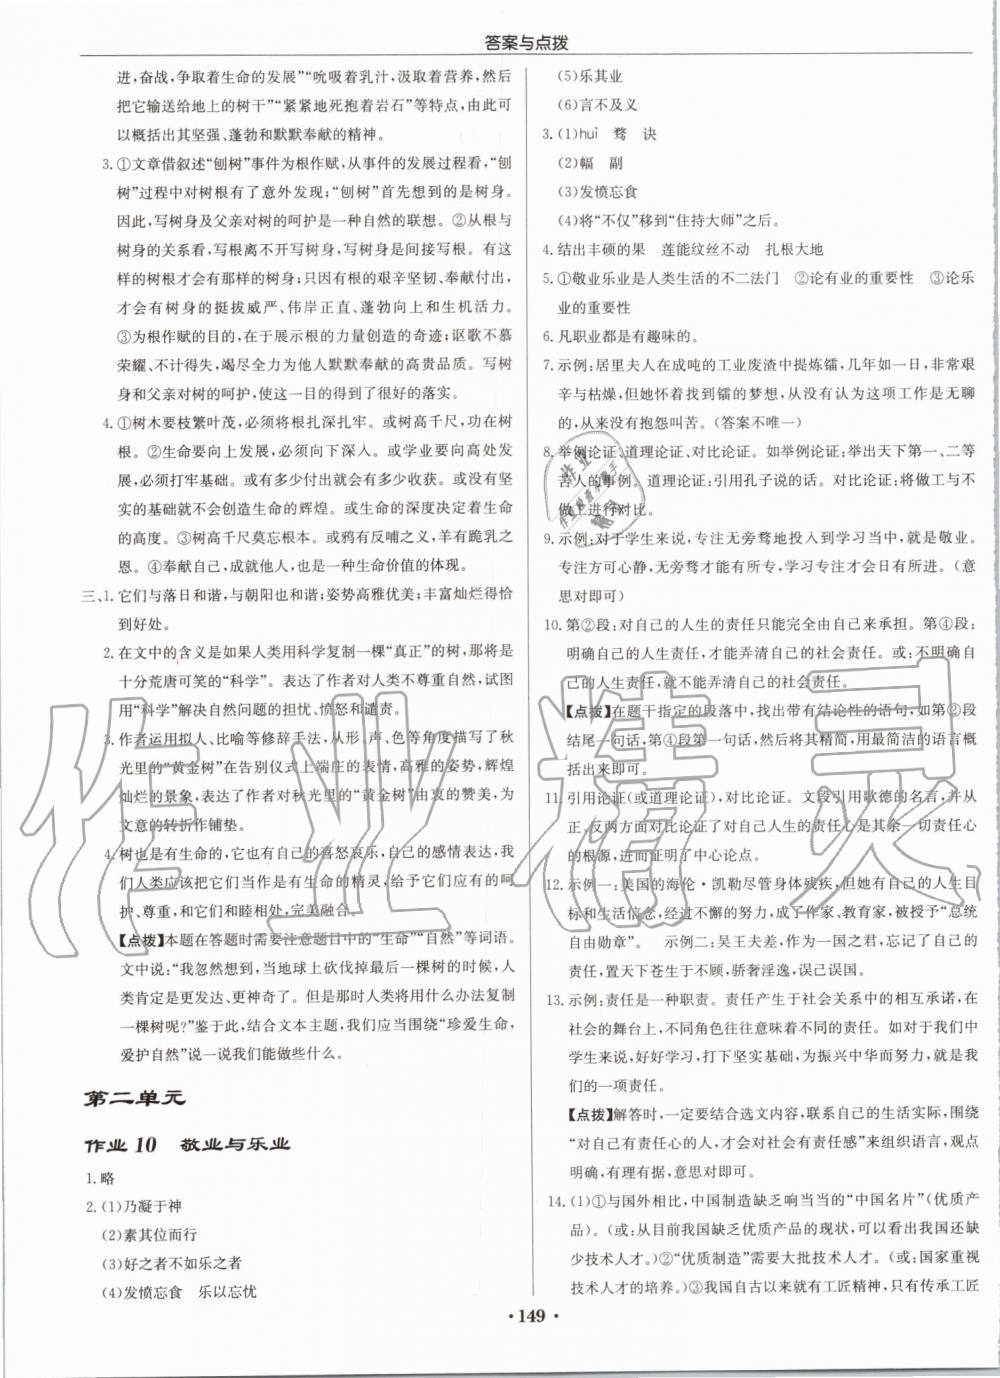 答案与点拨
进，奋战，争取着生命的发展”“吮吸着乳汁，汲取着营养，然后
把它输送给地上的树干”“紧紧地死抱着岩石”等特点，由此可
以概括出其坚强、蓬勃和默默奉献的精神。
3.①文章借叙述“刨树”事件为根作赋，从事件的发展过程看，“刨
树”过程中对树根有了意外发现；“刨树”首先想到的是树身。
因此，写树身及父亲对树的呵护是一种自然的联想。②从根与
树身的关系看，写根离不开写树身，写树身是间接写根。有这
样的树根才会有那样的树身；只因有根的艰辛坚韧、奉献给予，
才会有树身的挺拔威严、伟岸正直、蓬勃向上和生机活力。
③为根作赋的目的，在于展示根的力量创造的奇迹；讴歌不慕
荣耀、不计得失，竭尽全力为他人默默奉献的高贵品质。写树
身和父亲对树的呵护，使这一目的得到了很好的落实。
4.①树木要枝繁叶茂，必须将根扎深扎牢。或树高千尺，功在于
根。②生命要向上，必须向下深入。或学业要向高处发
展，必须打牢基础。或有多少付出就会有多少收获。或没有坚
实的基础就不会创造生命的辉煌。或生命的深度决定着生命
的高度。③树高千尺莫忘根本。或鸦有反哺之义，羊有跪乳之
恩。④奉献自己，成就他人，也是一种生命价值的体现。
三、1.它们与落日和谐，与朝阳也和谐；姿势高雅优美；丰富灿烂得恰
到好处。
2.在文中的含义是如果人类用科学复制一棵“真正”的树，那将是
十分荒唐可笑的“科学”。表达了作者对人类不尊重自然，试图
用“科学”解决自然问题的担忧、愤怒和谴责。
3.作者运用拟人、比喻等修辞手法，从形、声、色等角度描写了秋
光里的“黄金树”在告别仪式上端庄的表情，高雅的姿势，辉煌
灿烂的景象，表达了作者对秋光里的“黄金树”由衷的赞美，为
文意的转折作铺垫。
4.树也是有生命的，它也有自己的喜怒哀乐，自己的感情表达，我
们人类应该把它们当作是有生命的精灵，给予它们应有的呵
护、尊重，和它们和睦相处，完美融合。
【点拨】本题在答题时需要注意题目中的“生命”“自然”等词语。
文中说：“我忽然想到，当地球上砍伐掉最后一棵树的时候，人
类肯定是更发达、更神奇了。但是那时人类将用什么办法复制
一棵树呢？”鉴于此，结合文本主题，我们应当围绕“珍爱生命，
爱护自然”说一说我们能做些什么。
第二单元
作业10 敬业与乐业
1.略
2.(1)乃凝于神
(2)素其位而行
(3)好之者不如乐之者
(4)发愤忘食 乐以忘忧
(5)乐其业
(6)言不及义
3.(1)huì 骛 诀
(2)幅 副
(3)发愤忘食
(4)将“不仅”移到“住持大师”之后。
4.结出丰硕的果 莲能纹丝不动 扎根大地
5.①敬业乐业是人类生活的不二法门 ②论有业的重要性 ③论乐
业的重要性
6.凡职业都是有趣味的。
7.示例：居里夫人在成吨的工业废渣中提炼镭，几年如一日，非常艰
辛与枯燥，但她怀着找到镭的梦想，从没有认为这项工作是无聊
的，从来没有抱怨叫苦。（答案不唯一）
8.举例论证、道理论证、对比论证。如举例论证：举出天下第一、二等
苦人的事例。道理论证：引用孔子说的话。对比论证：将做工与不
做工进行对比。
9.示例：对于学生来说，专注无旁骛地投入到学习当中，就是敬业。
专注方可心静，无旁骛才能有正气，学习专注才会有所进步。（意
思对即可）
10.第②段：对自己的人生的责任只能完全由自己来承担。第④段：
明确自己的人生责任，才能弄清自己的社会责任。或：不明确自
己的人生责任，就不能弄清自己的社会责任。
【点拨】在题干指定的段落中，找出带有结论性的语句，如第②段
结尾一句话，第④段第一句话，然后将其精简，用最简洁的语言概
括出来即可。
11.引用论证（或道理论证），对比论证。文段引用歌德的名言，并从
正、反两方面对比论证了对自己人生的责任心是其余一切责任心
的根源，进而证明了中心论点。
12.示例一：美国的海伦·凯勒尽管身体残疾，但她有自己的人生目
标和生活信念，经过不懈的努力，成了作家、教育家，被授予“总统
自由勋章”。 示例二：吴王夫差，作为一国之君，忘记了自己的责
任，置天下苍生于不顾，骄奢淫逸，误己误国。
13.示例：责任是一种职责。责任产生于社会关系中的相互承诺，在
社会的舞台上，不同角色往往意味着不同的责任。如对于我们中
学生来说，好好学习，打下坚实基础，为振兴中华而努力，就是我
们的一项责任。
【点拨】解答时，一定要结合选文内容，联系自己的生活实际，围绕
“对自己有责任心的人，才会对社会有责任感”来组织语言，观点
明确，有理有据，意思对即可。
14.(1)①与国外相比，中国制造缺乏响当当的“中国名片”（优质产
品）。（或：从目前我国缺乏优质产品的现状，可以看出我国还缺
少技术人才。）②“优质制造”需要大批技术人才。（或：国家重视
技术人才的培养。）③我国自古以来就有工匠精神，只有传承工匠
·149·
作业精灵